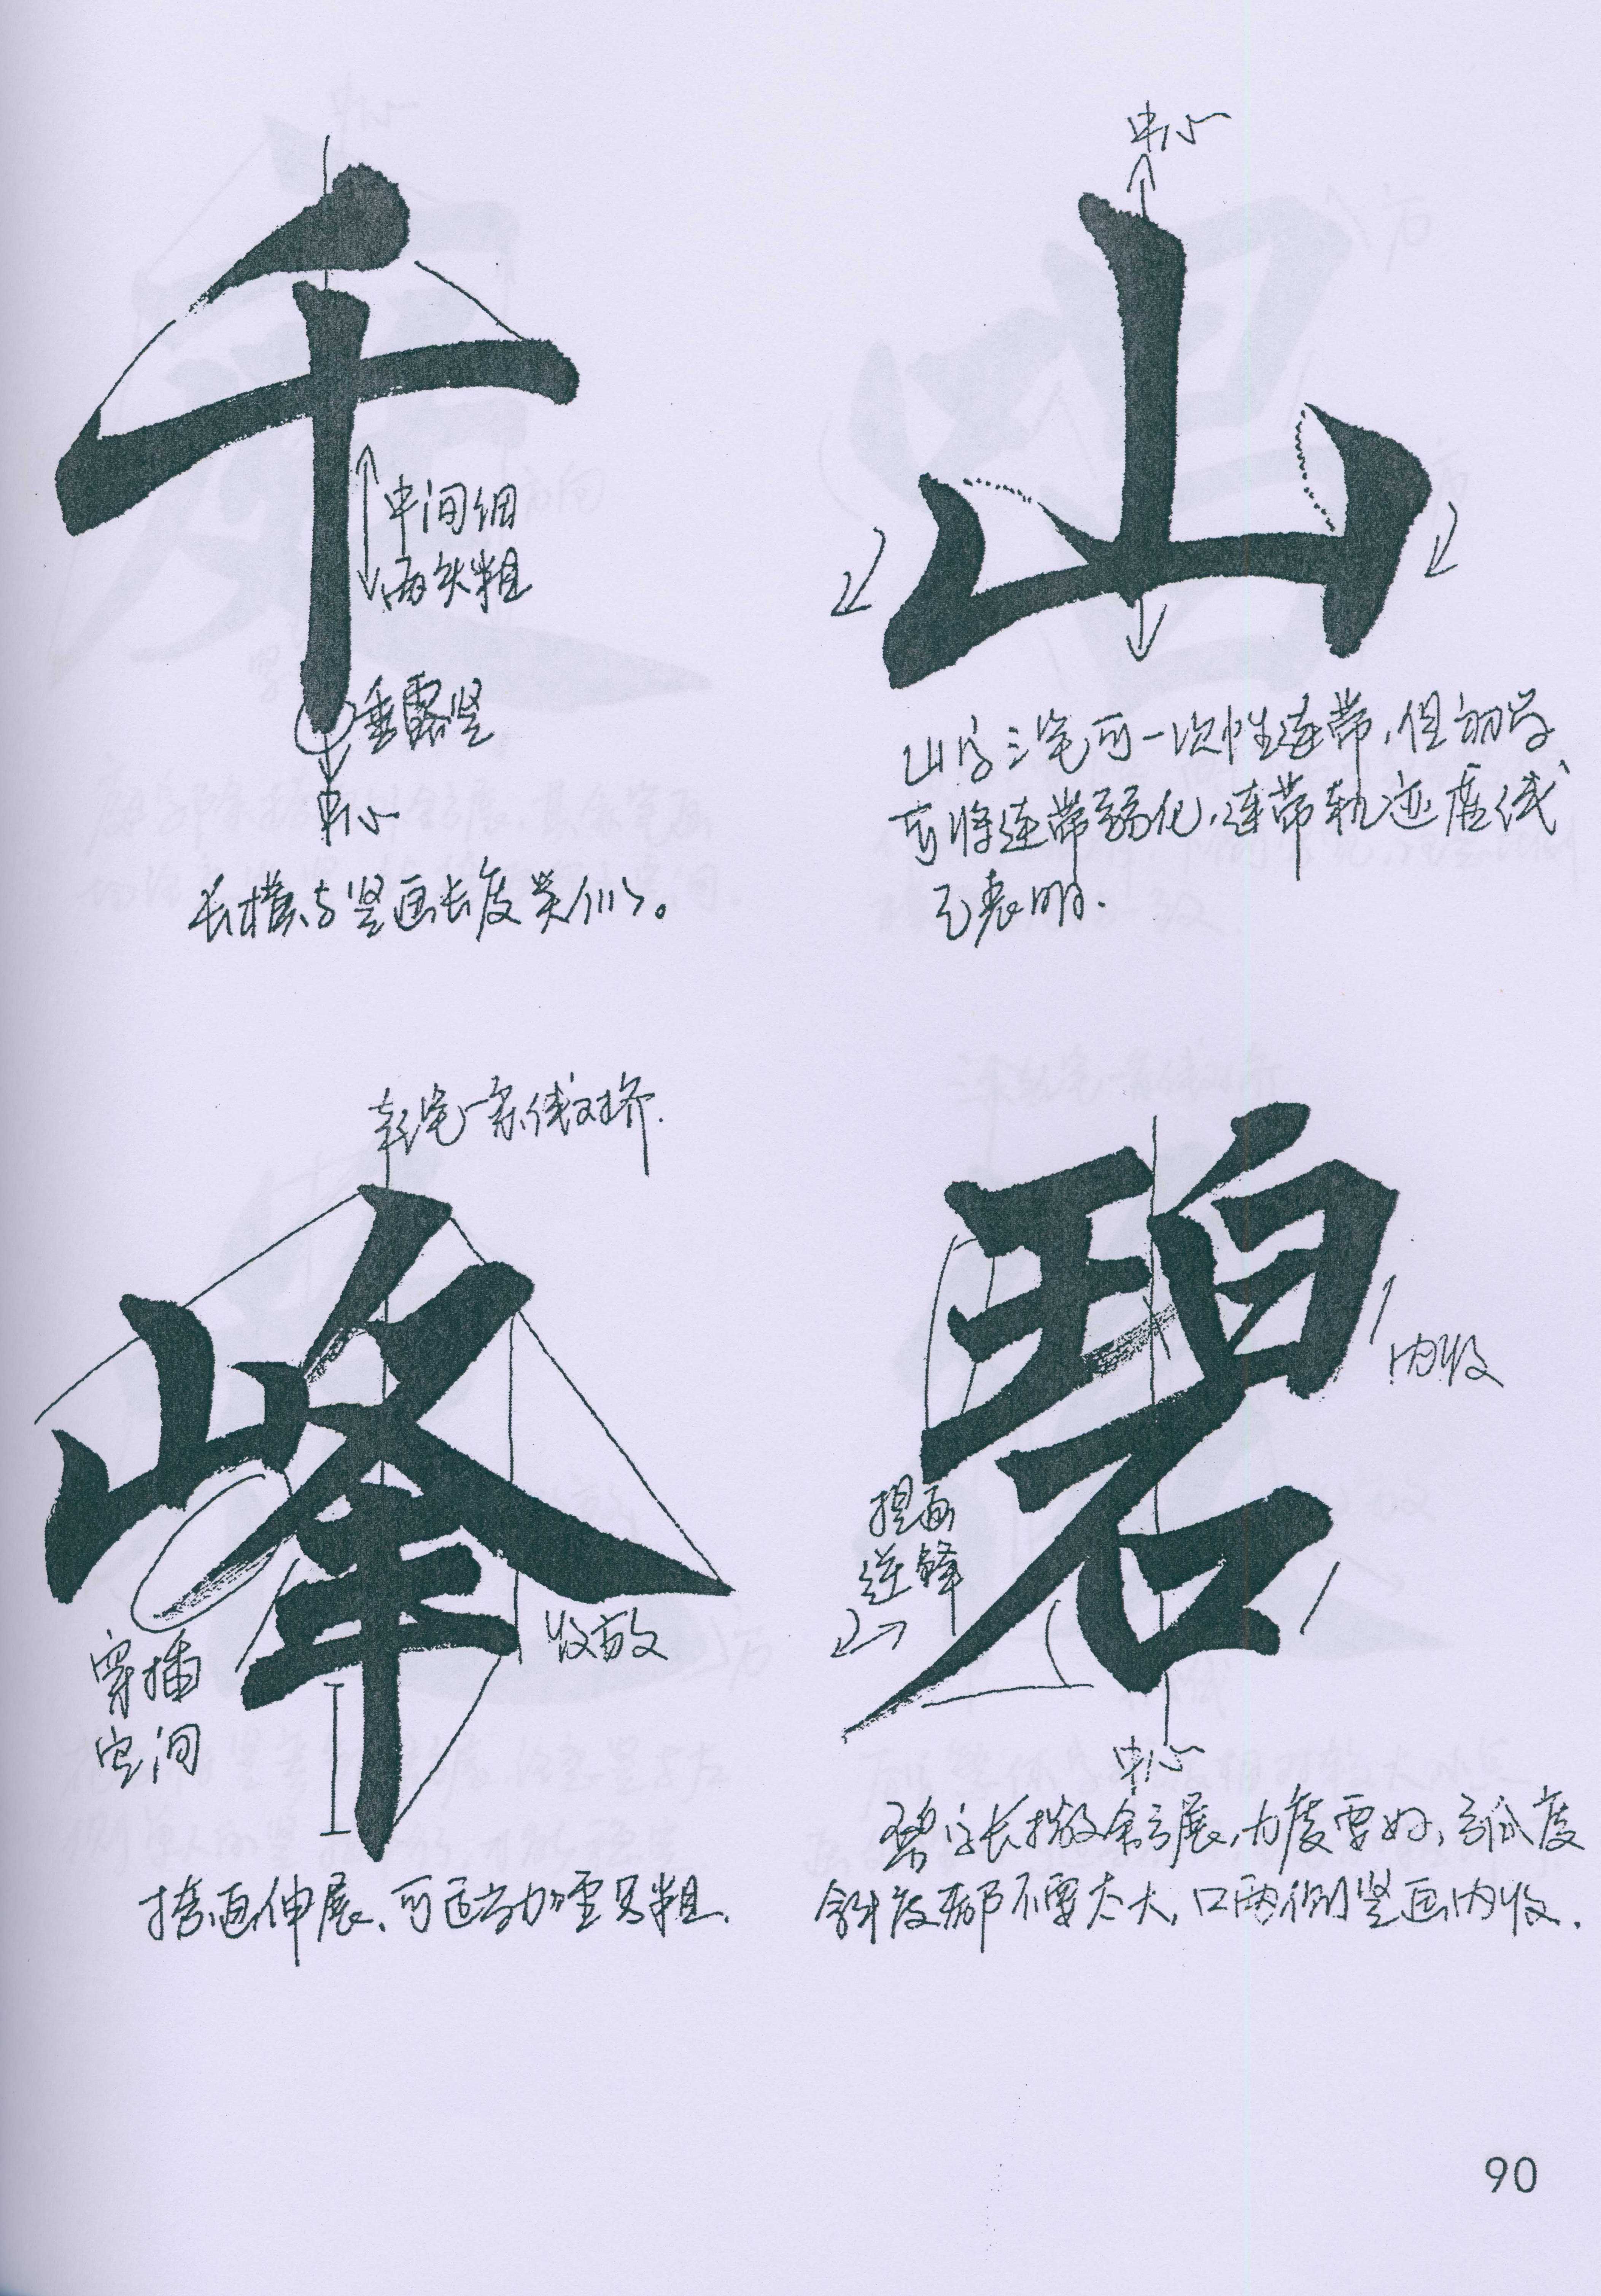 千
中间细
两头粗
垂露竖
中心
长横与竖画长度类似。
中心
山
山字三笔可一次性连带,但初学
可将连带弱化,连带轨迹虚线
已表明.
起笔一条线对齐.
峰
收放
穿插
空间
捺画伸展、可适当加重写粗.
碧
内收
提画
逆锋
中心
碧字长撇舒展,力度要好,弧度
斜度都不要太大,口两侧竖画内收.
90